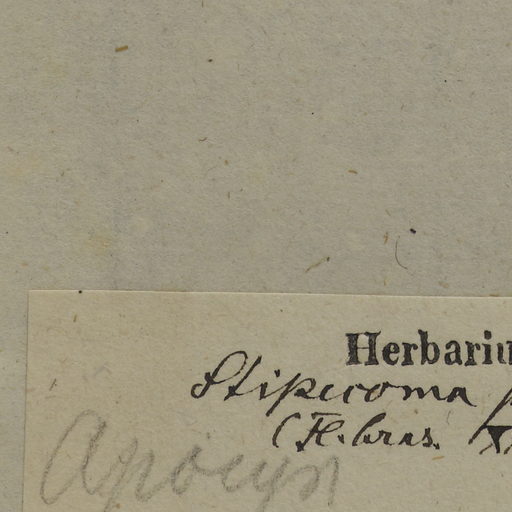 Herbariu
Stipecoma p
(Fl. bras.
Apocyn